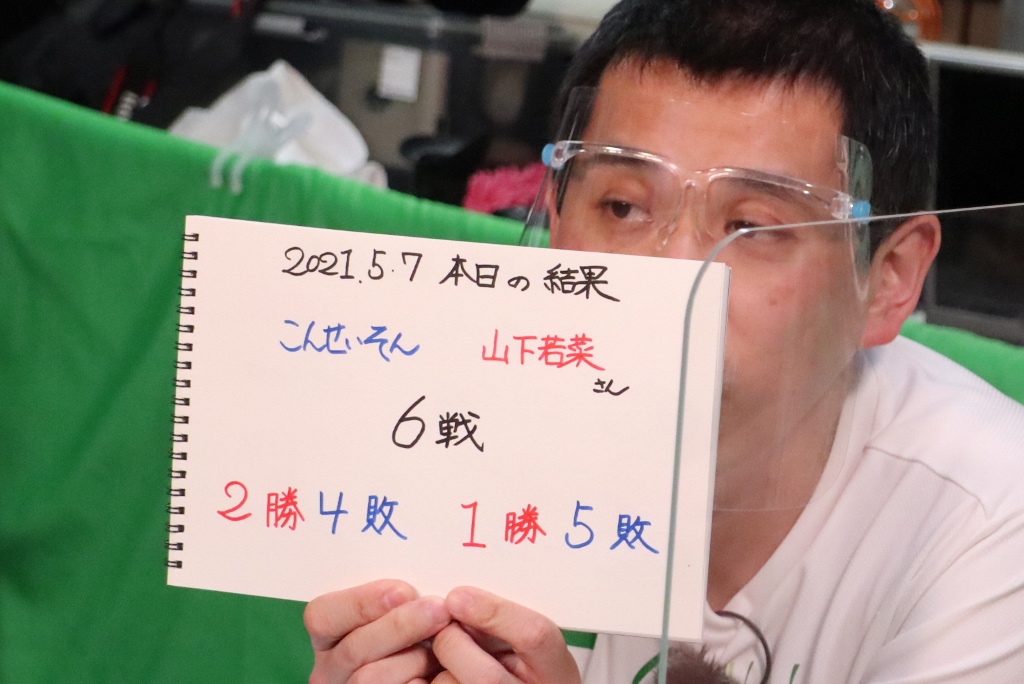 2021.5.7 本日の結果
こんせいそん 山下若菜
さん
6戦
2勝4敗 1勝5敗